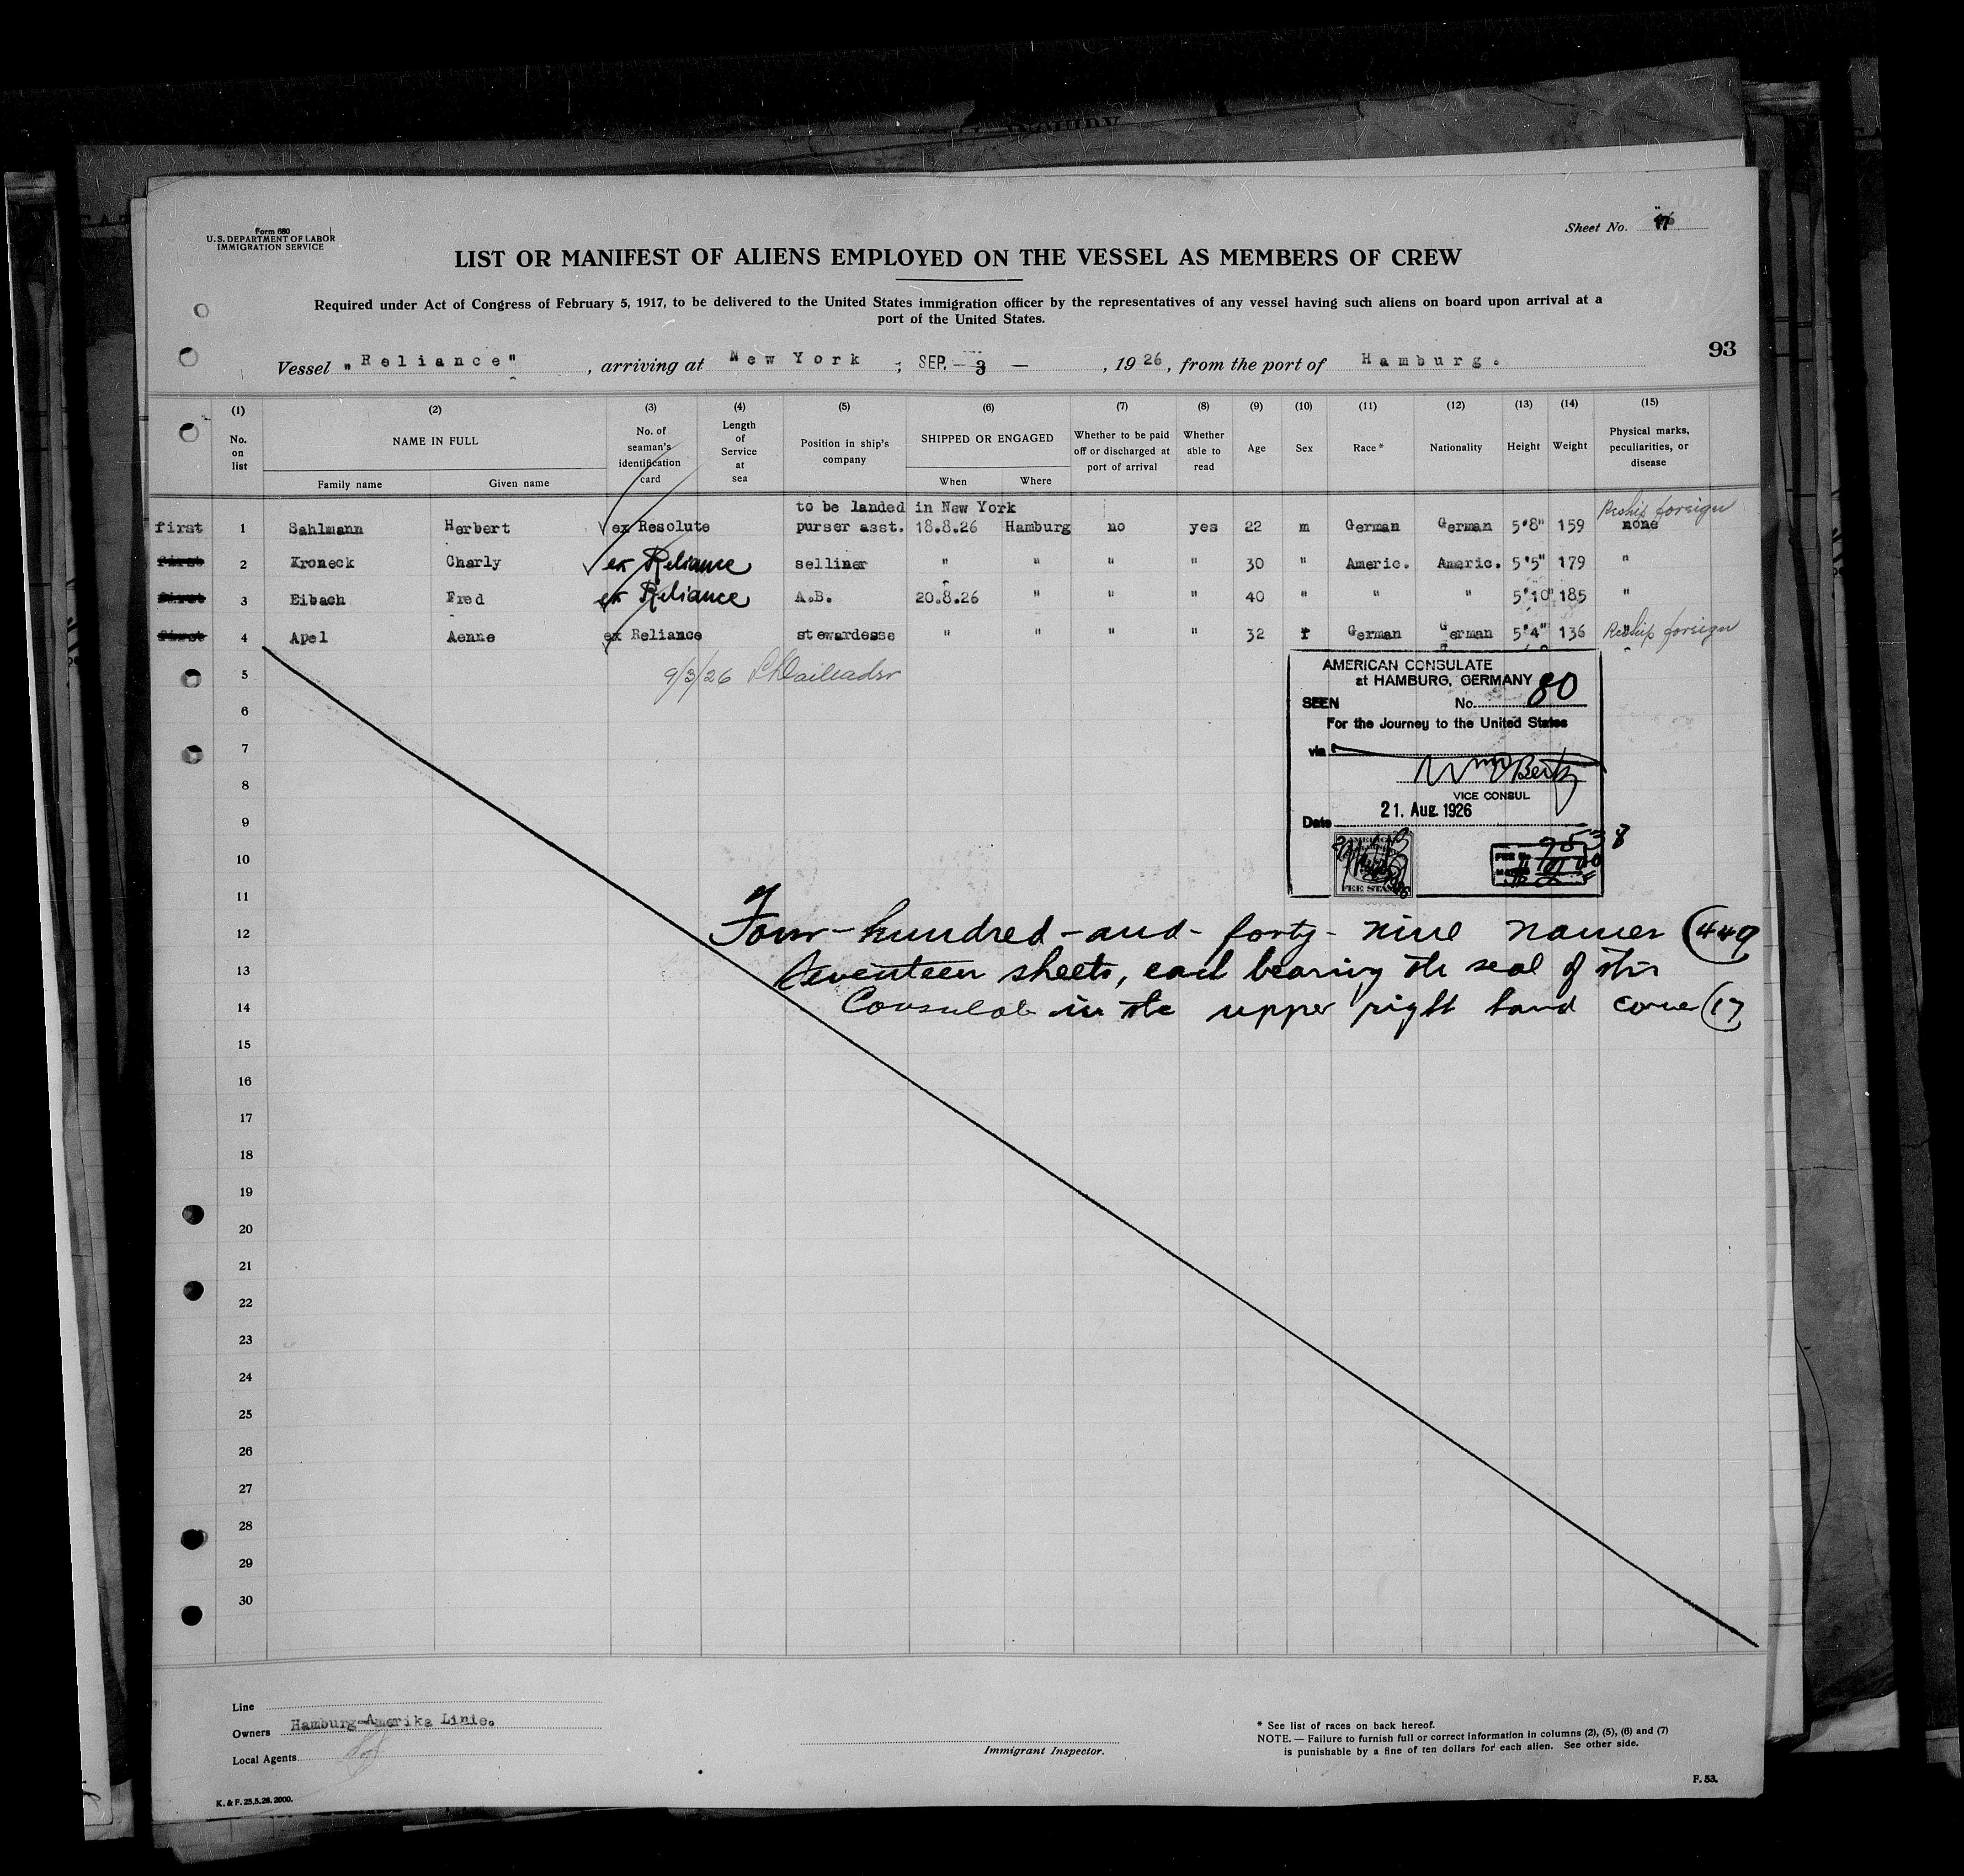 Form 680
U.S. DEPARTMENT OF LABOR
IMMIGRATION SERVICE
Sheet No.
LIST OR MANIFEST OF ALIENS EMPLOYED ON THE VESSEL AS MEMBERS OF CREW
Required under Act of Congress of February 5, 1917, to be delivered to the United States immigration officer by the representatives of any vessel having such aliens on board upon arrival at a
port of the United States.
93
Vessel "Reliance", arriving at New York, SEP. - 3 -, 1926, from the port of Hamburg.
(1) (2) (3) (4) (5) (6) (7) (8) (9) (10) (11) (12) (13) (14) (15)
No. on list NAME IN FULL Family name Given name No. of seaman's identification card Length of Service at sea Position in ship's company SHIPPED OR ENGAGED When Where Whether to be paid off or discharged at port of arrival Whether able to read Age Sex Race* Nationality Height Weight Physical marks, peculiarities, or disease
to be landed in New York Reship foreign
first 1 Sahlmann Herbert ex Resolute purser asst. 18.8.26 Hamburg no yes 22 m German German 5'8" 159 none
first 2 Kroneck Charly ex Reliance selliner " " " " 30 " Americ. Americ. 5'5" 179 "
first 3 Eibach Fred ex Reliance A.B. 20.8.26 " " " 40 " " " 5'10" 185 "
first 4 Apel Aenne ex Reliance stewardesse " " " " 32 f German German 5'4" 136 " Reship foreign
5 9/3/26
6
7
8
9
10
11
12
13
14
15
16
17
18
19
20
21
22
23
24
25
26
27
28
29
30
AMERICAN CONSULATE
at HAMBURG, GERMANY
SEEN No. 80
For the Journey to the United States
via
VICE CONSUL
Date 21. Aug. 1926
FEE STAMP
Four-hundred-and-forty-nine names (449
Seventeen sheets, each bearing the seal of this
Consulate in the upper right hand corner (17
Line
Owners Hamburg-Amerika Linie.
Local Agents
Immigrant Inspector.
* See list of races on back hereof.
NOTE. — Failure to furnish full or correct information in columns (2), (5), (6) and (7)
is punishable by a fine of ten dollars for each alien. See other side.
K. & F. 25.5.26. 2000.
F. 53.